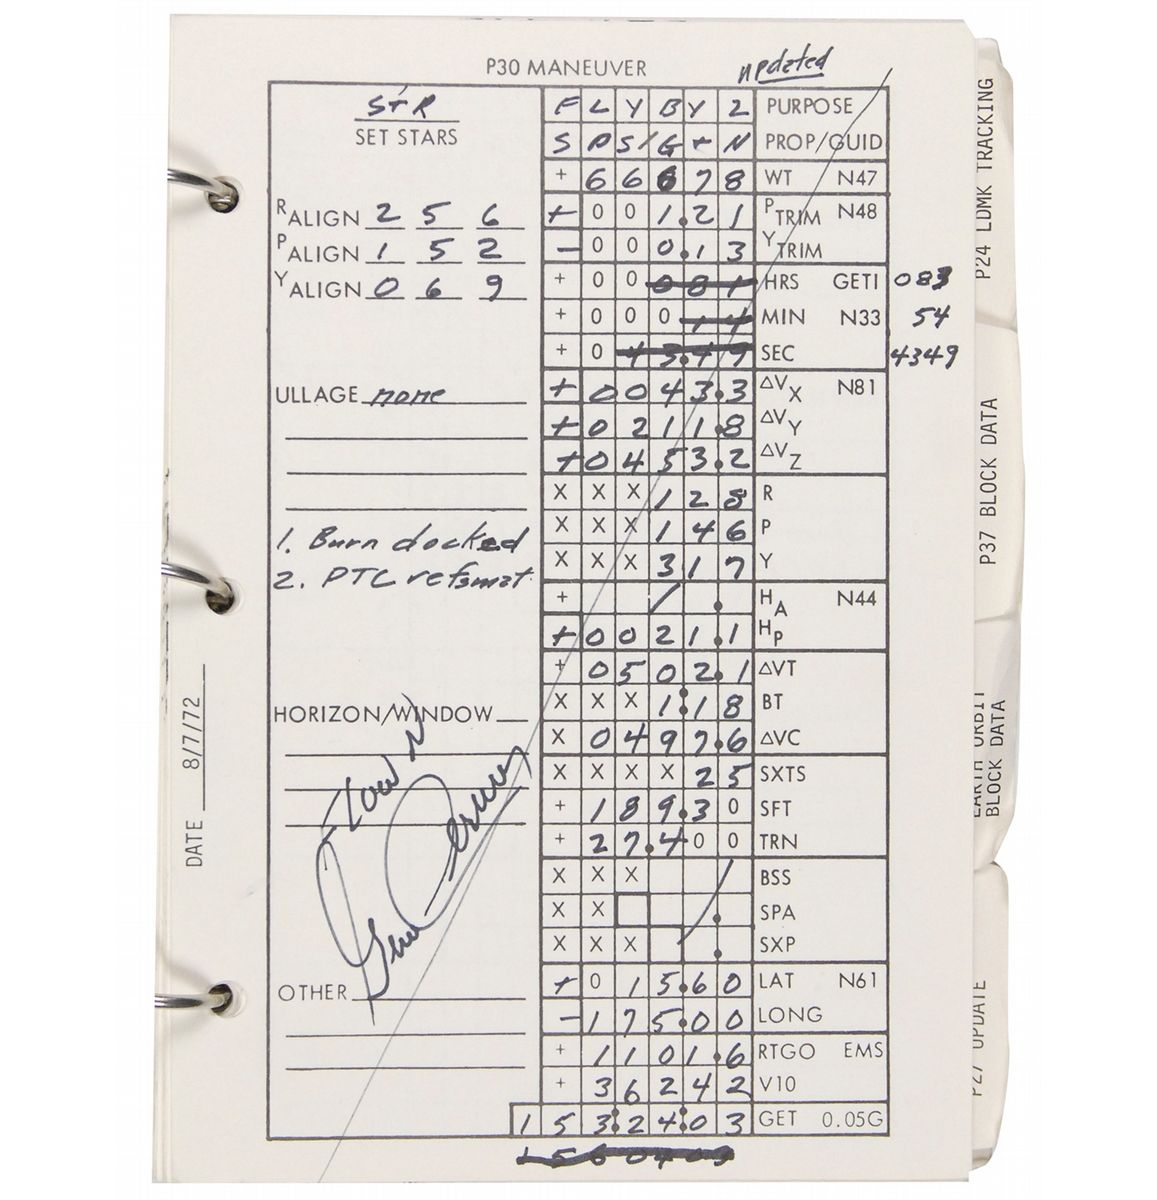 P30 MANEUVER
updated
S+R
SET STARS
F L Y B Y 2 PURPOSE
S P S / G + N PROP/GUID
+ 6 6 6 7 8 WT N47
R ALIGN 2 5 6
+ 0 0 1.2 1 P TRIM N48
P ALIGN 1 5 2
- 0 0 0.1 3 Y TRIM
Y ALIGN 0 6 9
+ 0 0 0 8 1 HRS GETI 083
+ 0 0 0 1 4 MIN N33 54
+ 0 4 3.4 9 SEC 4349
ULLAGE none
+ 0 0 4 3.3 ΔVX N81
+ 0 2 1 1.8 ΔVY
+ 0 4 5 3.2 ΔVZ
X X X 1 2 8 R
1. Burn docked
X X X 1 4 6 P
2. PTC refsmat
X X X 3 1 7 Y
+ / . HA N44
+ 0 0 2 1.1 HP
+ 0 5 0 2.1 ΔVT
HORIZON/WINDOW
X X X 1:1 8 BT
X 0 4 9 7.6 ΔVC
X X X X 2 5 SXTS
+ 1 8 9.3 0 SFT
+ 2 7.4 0 0 TRN
Flown
Gene Cernan
X X X BSS
X X . SPA
X X X . SXP
OTHER
+ 0 1 5.6 0 LAT N61
- 1 7 5.0 0 LONG
+ 1 1 0 1.6 RTGO EMS
+ 3 6 2 4 2 V10
1 5 3:2 4:0 3 GET 0.05G
DATE 8/7/72
P24 LDMK TRACKING
P37 BLOCK DATA
EARTH ORBIT
BLOCK DATA
P27 UPDATE